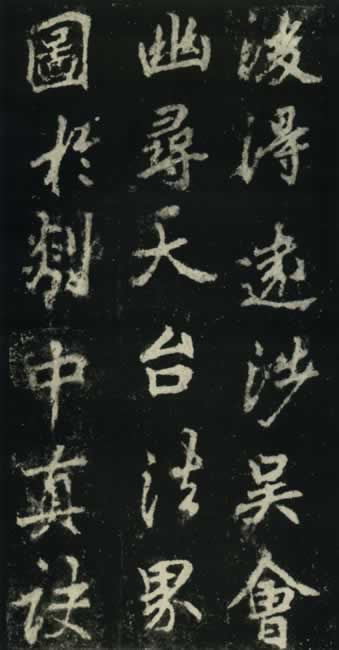 後得遠涉吳會
幽尋天台法界
圖於剡中真訣